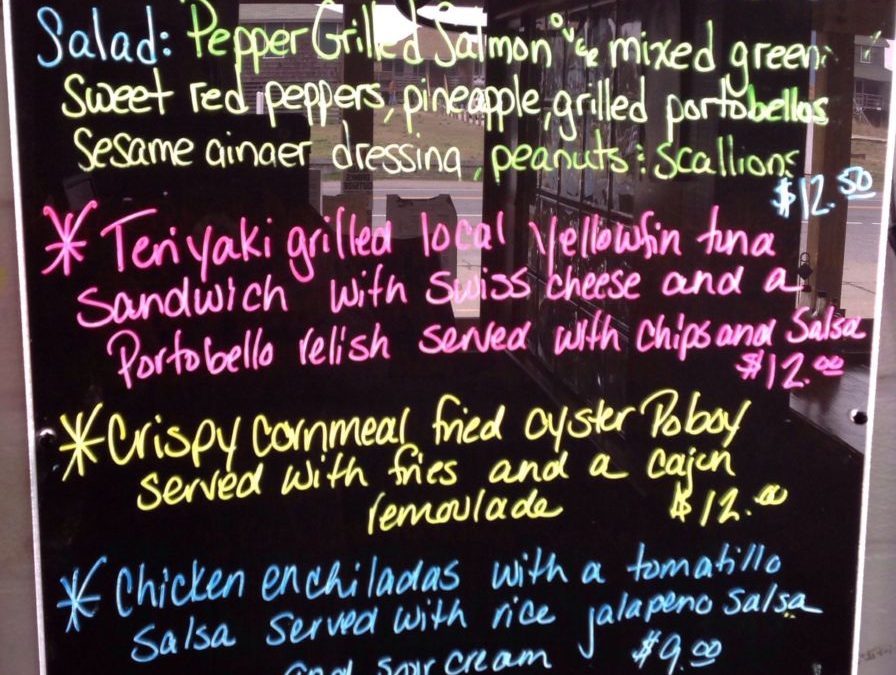 Salad: Pepper Grilled Salmon mixed green
Sweet red peppers, pineapple, grilled portobellos
Sesame ginger dressing, peanuts & scallions
$12.50
* Teriyaki grilled local Yellowfin tuna
sandwich with swiss cheese and a
Portobello relish served with chips and Salsa
$12.00
* Crispy cornmeal fried oyster Poboy
served with fries and a cajun
remoulade $12.00
* Chicken enchiladas with a tomatillo
Salsa served with rice jalapeno Salsa
and sour cream $9.00